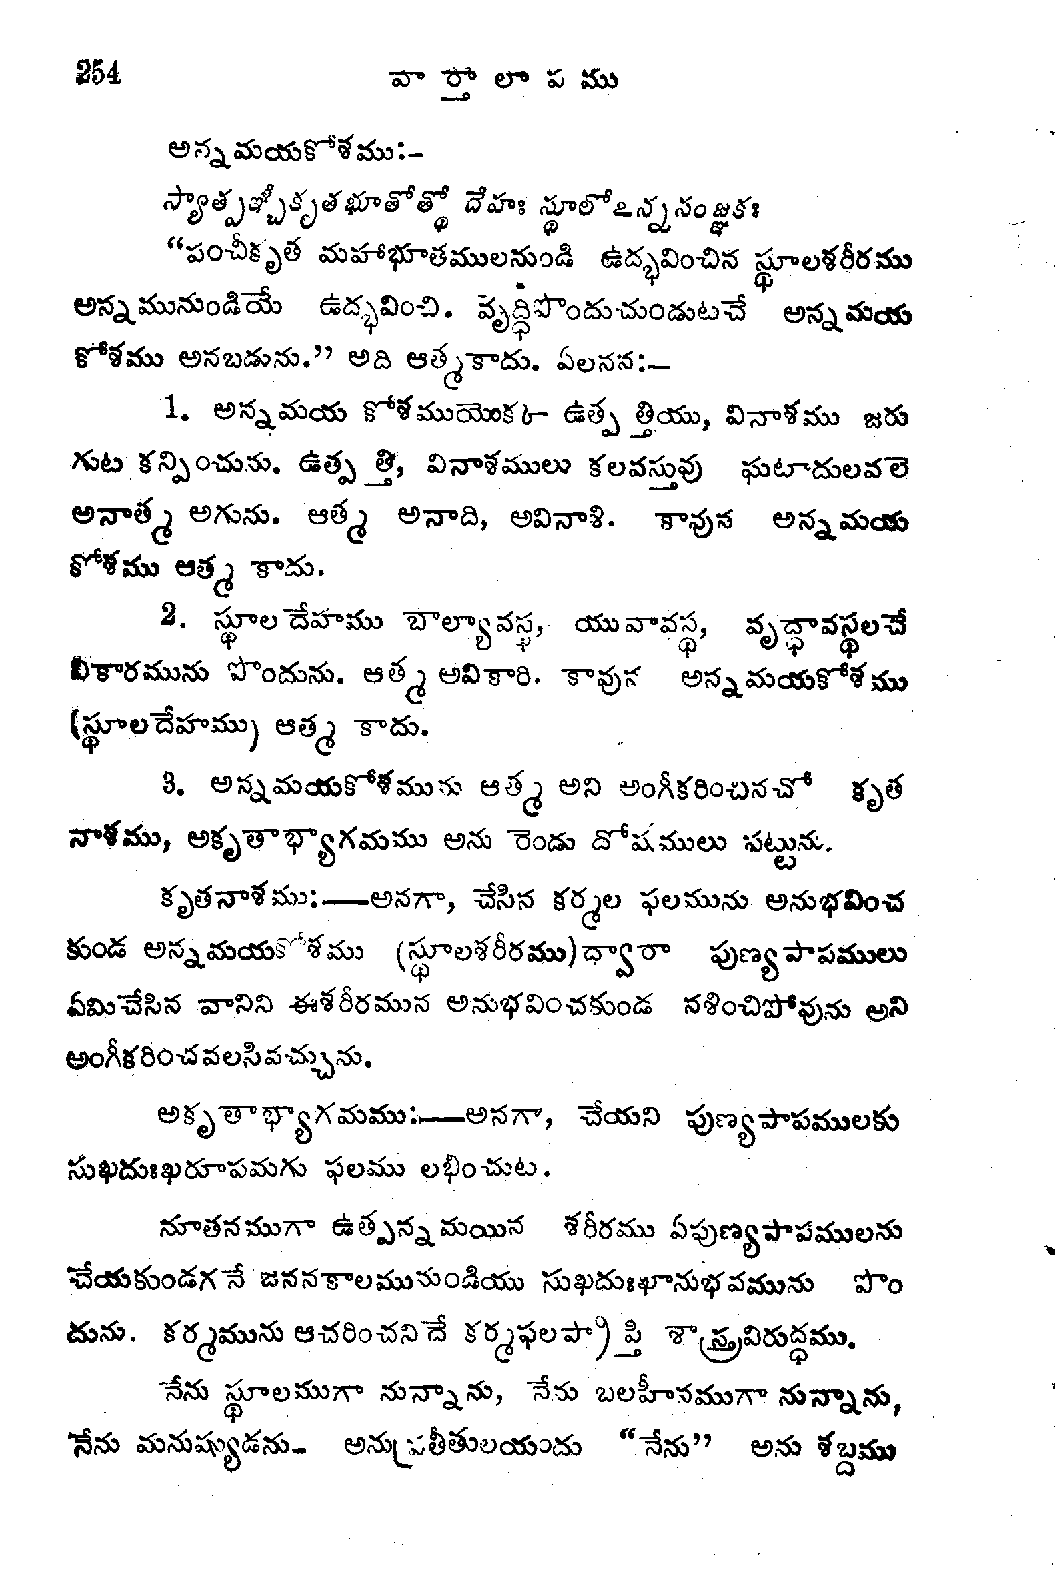 254
వార్తాలాపము
అన్నమయకోశము:–
స్యాత్పఞ్చీకృతభూతోత్థో దేహః స్థూలోఽన్నసంజ్ఞకః
“పంచీకృత మహాభూతములనుండి ఉద్భవించిన స్థూలశరీరము
అన్నమునుండియే ఉద్భవించి. వృద్ధిపొందుచుండుటచే అన్నమయ
కోశము అనబడును.” అది ఆత్మకాదు. ఏలనన:—
1. అన్నమయ కోశముయొక్క ఉత్పత్తియు, వినాశము జరు
గుట కన్పించును. ఉత్పత్తి, వినాశములు కలవస్తువు ఘటాదులవలె
అనాత్మ అగును. ఆత్మ అనాది, అవినాశి. కావున అన్నమయ
కోశము ఆత్మ కాదు.
2. స్థూలదేహము బాల్యావస్థ, యువావస్థ, వృద్ధావస్థలచే
వికారమును పొందును. ఆత్మ అవికారి. కావున అన్నమయకోశము
(స్థూలదేహము) ఆత్మ కాదు.
3. అన్నమయకోశమును ఆత్మ అని అంగీకరించినచో కృత
నాశము, అకృతాభ్యాగమము అను రెండు దోషములు పట్టును.
కృతనాశము:—అనగా, చేసిన కర్మల ఫలమును అనుభవించ
కుండ అన్నమయకోశము (స్థూలశరీరము)ద్వారా పుణ్యపాపములు
ఏమిచేసిన వానిని ఈశరీరమున అనుభవించకుండ నశించిపోవును అని
అంగీకరించవలసివచ్చును.
అకృతాభ్యాగమము:—అనగా, చేయని పుణ్యపాపములకు
సుఖదుఃఖరూపమగు ఫలము లభించుట.
నూతనముగా ఉత్పన్నమయిన శరీరము ఏపుణ్యపాపములను
చేయకుండగనే జననకాలమునుండియు సుఖదుఃఖానుభవమును పొం
దును. కర్మమును ఆచరించనిదే కర్మఫలప్రాప్తి శాస్త్రవిరుద్ధము.
నేను స్థూలముగా నున్నాను, నేను బలహీనముగా నున్నాను,
నేను మనుష్యుడను– అనుప్రతీతులయందు “నేను” అను శబ్దము